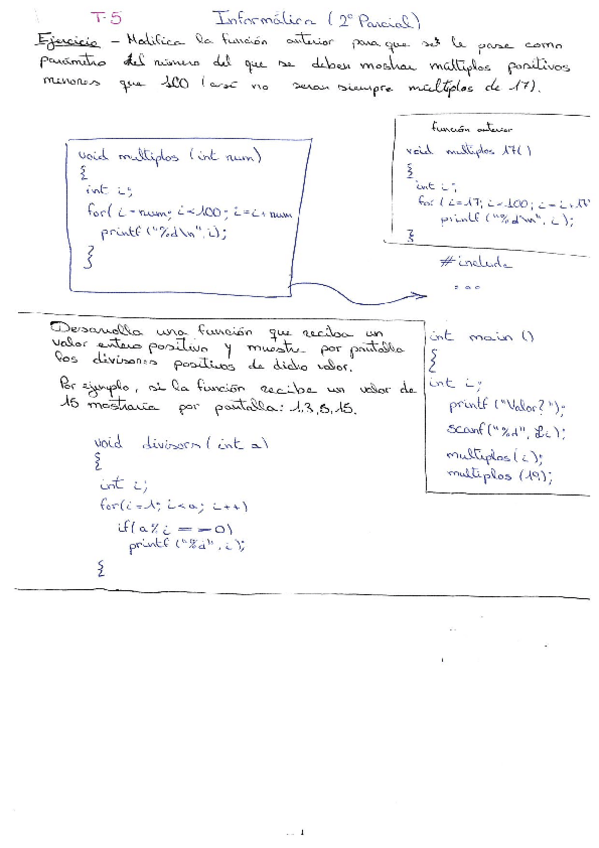 T-5 Informática (2º Parcial)
Ejercicio - Modifica la función anterior para que se le pase como
parámetro del número del que se deben mostrar múltiplos positivos
menores que 100 (así no seran siempre múltiplos de 17).
void multiplos (int num)
{
int i;
for(i=num; i<100; i=i+num
printf ("%d\n", i);
}
función anterior
void multiplos 17()
{
int i;
for (i=17; i<100; i=i+17
printf ("%d\n", i);
}
#include
...
int main ()
{
int i;
printf ("Valor?");
scanf ("%d", &i);
multiplos (i);
multiplos (19);
Desarrolla una función que reciba un
valor entero positivo y muestre por pantalla
los divisores positivos de dicho valor.
Por ejemplo, si la función recibe un valor de
15 mostraría por pantalla: 1,3,5,15.
void divisors (int a)
{
int i;
for(i=1; i<a; i++)
if(a%i == 0)
printf ("%d", i);
{
1